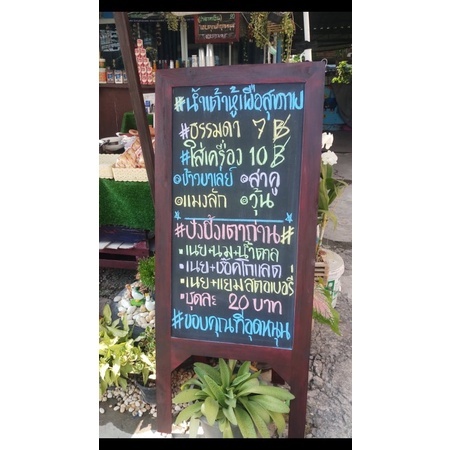 #น้ำเต้าหู้เพื่อสุขภาพ
#ธรรมดา 7 ฿
#ใส่เครื่อง 10 ฿
ข้าวบาเลย์ สาคู
แมงลัก วุ้น
#ปังปิ้งเตาถ่าน#
เนย+นม+น้ำตาล
เนย+ช็อคโกแลต
เนย+แยมสตอเบอรี่
ชุดละ 20 บาท
#ขอบคุณที่อุดหนุน